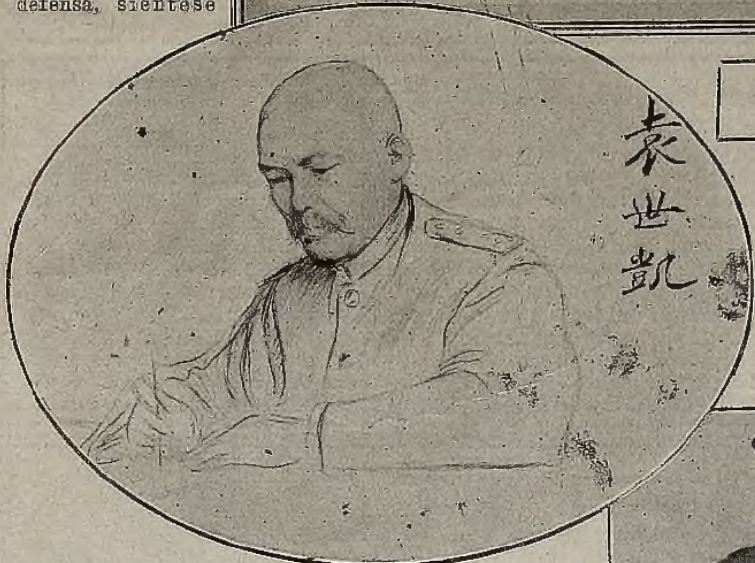 defensa, siéntese
袁世凱